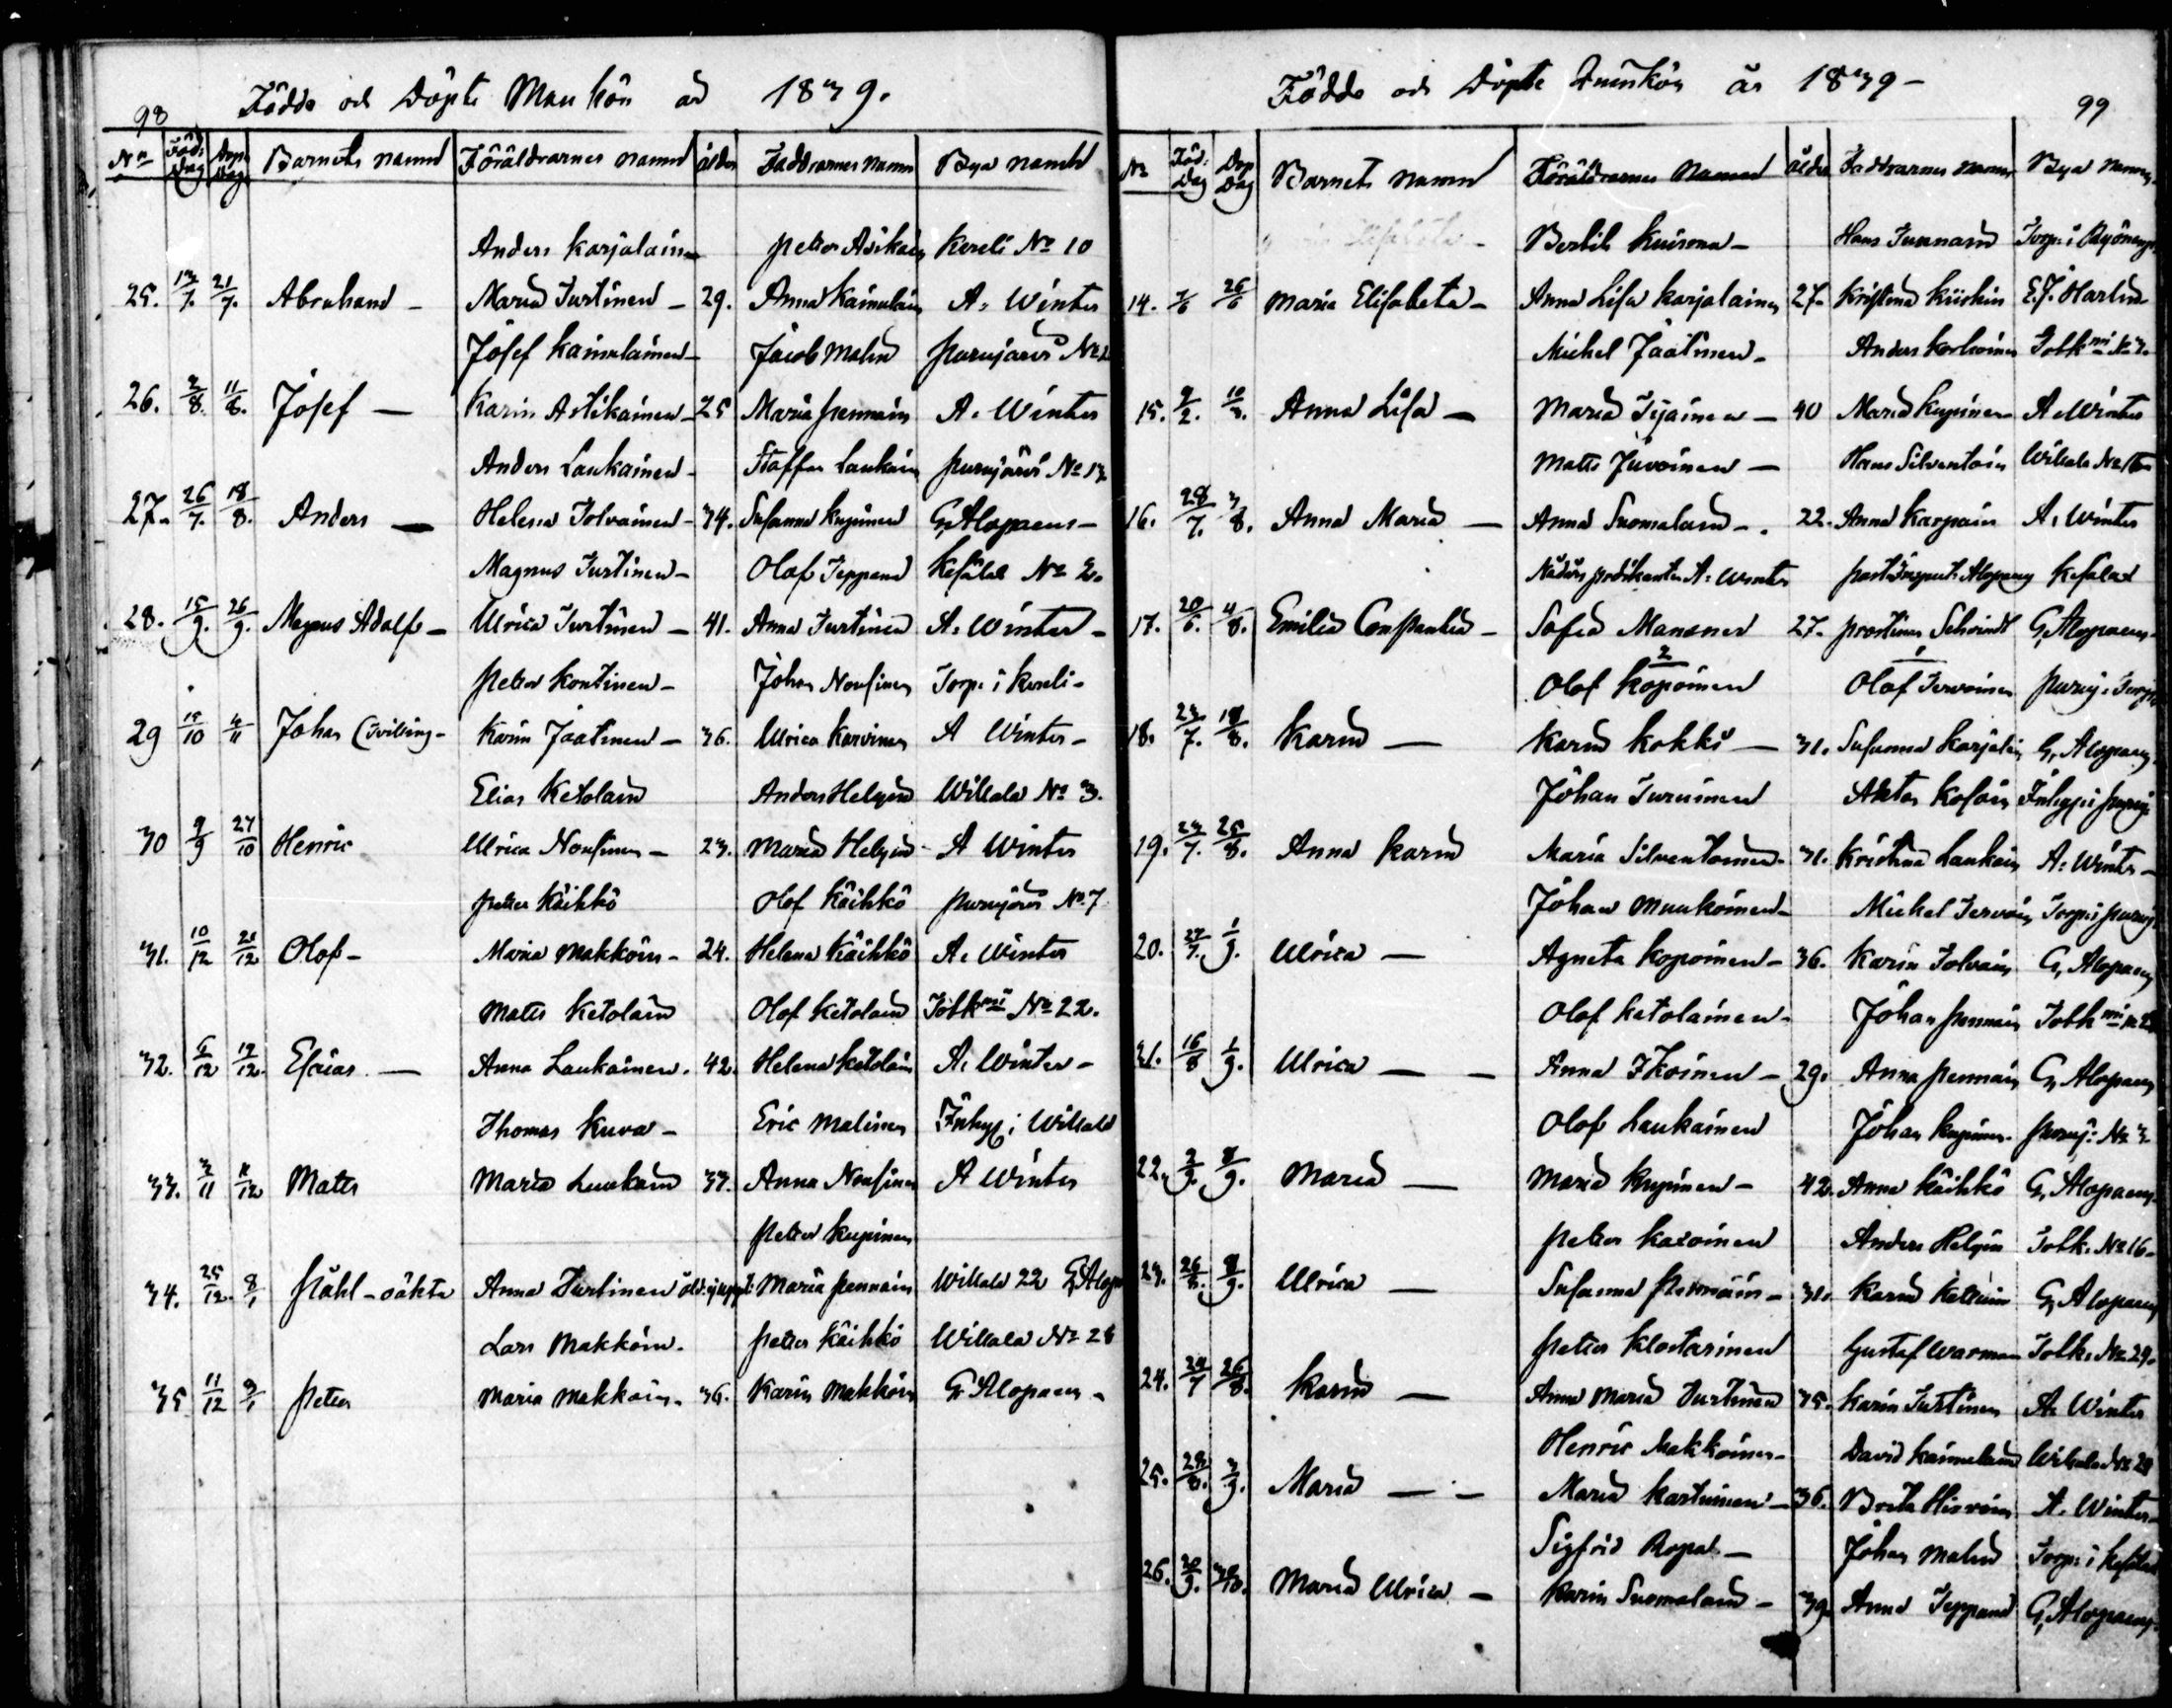 98 Födde och Döpte Mankön år 1839.
No Föd: Dag Döp Dag Barnets namn Föräldrarnes namn ålder Faddrarnes namn Bya namn
Anders Karjalainen Petter Asikain Kereli No 10
25. 13/7. 21/7. Abraham – Maria Turtinen – 29. Anna Kainulain A. Winter
Josef Kainulainen – Jacob Malin Purujärvi No 2
26. 3/8. 11/8. Josef – Karin Astikainen – 25 Maria Pennain A. Winter
Anders Laukainen – Staffan Laukain Purujärvi No 13
27. 26/7. 18/8. Anders – Helena Tolvainen – 34. Susanna Kupinen G. Alopaeus –
Magnus Turtinen – Olof Teppana Kesälax No 2.
28. 15/9. 26/9. Magnus Adolf – Ulrica Turtinen – 41. Anna Turtinen A. Winter –
Petter Kontinen – Johan Nousinen Torp. i Kereli –
29 19/10 4/11 Johan (Tvilling – Karin Jaatinen – 36. Ulrica Karvinen A Winter –
Elias Ketolain Anders Helgin Willala No 3.
30 9/9 27/10 Henric Ulrica Nousinen – 23. Maria Helgin A Winter
Petter Käihkö Olof Käihkö Purujärvi No 7
31. 10/12 21/12 Olof – Maria Makkoin – 24. Helena Käihkö A. Winter
Matts Ketolain Olof Ketolain Totkmi No 22.
32. 6/12 19/12. Esaias – Anna Laukainen. 42. Helena Ketolain A. Winter –
Thomas Kuva – Eric Malinen Inhys i Willala
33. 3/11 11/12 Matts Maria Laukain 37. Anna Nousinen A Winter
Petter Kupinen
34. 25/12. 8/1 Påhl – oäkta Anna Turtinen åld: ej uppg: Maria Pennain Willala 22 G. Alop
Lars Makkoin. Petter Käihkö Willala No 28
35 11/12 9/1 Petter Maria Makkoin. 36. Karin Makkoin G. Alopaeus –
Födde och Döpte Qvinkön år 1839 – 99
No Föd: Dag Döp Dag Barnets namn Föräldrarnes namn ålder Faddrarnes namn Bya namn
Bertil Kuisma – Hans Tuunain Torp. i
14. 7/6 26/6 Maria Elisabeta – Anna Lisa Karjalainen 27. Kristina Kiiskin E.J. Harlin
Michel Jaatinen – Anders Korhoinen Totkmi No 3.
15. 9/2. 10/3. Anna Lisa – Maria Tijainen – 40 Maria Kupinen A. Winter
Matts Juvoinen – Hans Silventoin Willala No 16
16. 28/7. 3/8. Anna Maria – Anna Suomalain –. 22. Anna Karpain A. Winter
Nådårs predikanten A: Winter Alopaeus Kesälax
17. 20/6. 4/8. Emilia Constantia – Sofia Manener 27. prostinnan Schvindt G. Alopaeus –
Olof Kopoinen Olof Tervoinen Puruj: Torp
18. 23/7. 18/8. Karin – Karin Kokki – 31. Susanna Karjalain G. Alopaeus
Johan Turunen Matts Kosoin Inhys i Puruj
19. 23/7. 25/8. Anna Karin Maria Silventoinen – 31. Kristina Laukain A. Winter –
Johan Muukoinen – Michel Tervoin Torp. i Puruj
20. 27/7. 1/9. Ulrica – Agneta Kopoinen – 36. Karin Tolvain G. Alopaeus
Olof Ketolainen – Johan Pennain Totkmi No 2
21. 16/8 1/9. Ulrica – – Anna Ikoinen – 29. Anna Pennain G. Alopaeus
Olof Laukainen Johan Kupinen. Puruj: No 3
22. 2/9. 8/9. Maria – Maria Kupinen – 42. Anna Käihkö G. Alopaeus
Petter Karoinen Anders Helgin Totk. No 16.
23. 26/8. 8/9. Ulrica – Susanna Pennäin – 31. Karin G. Alopaeus
Petter Klostarinen Gustaf Warman Totk. No 29.
24. 24/7 26/8. Karin – Anna Maria Turtinen 35. Karin Turtinen A. Winter
Henric Makkoinen – David Kainulain Willala No 28
25. 28/8. 3/9. Maria – – Maria Kartunen – 36. Brita Hirvoin A. Winter –
Sigfrid Ropat – Johan Malin Torp. i Kesälax
26. 29/9. 30/10. Maria Ulrica – Karin Suomalain – 39. Anna Teppana G. Alopaeus